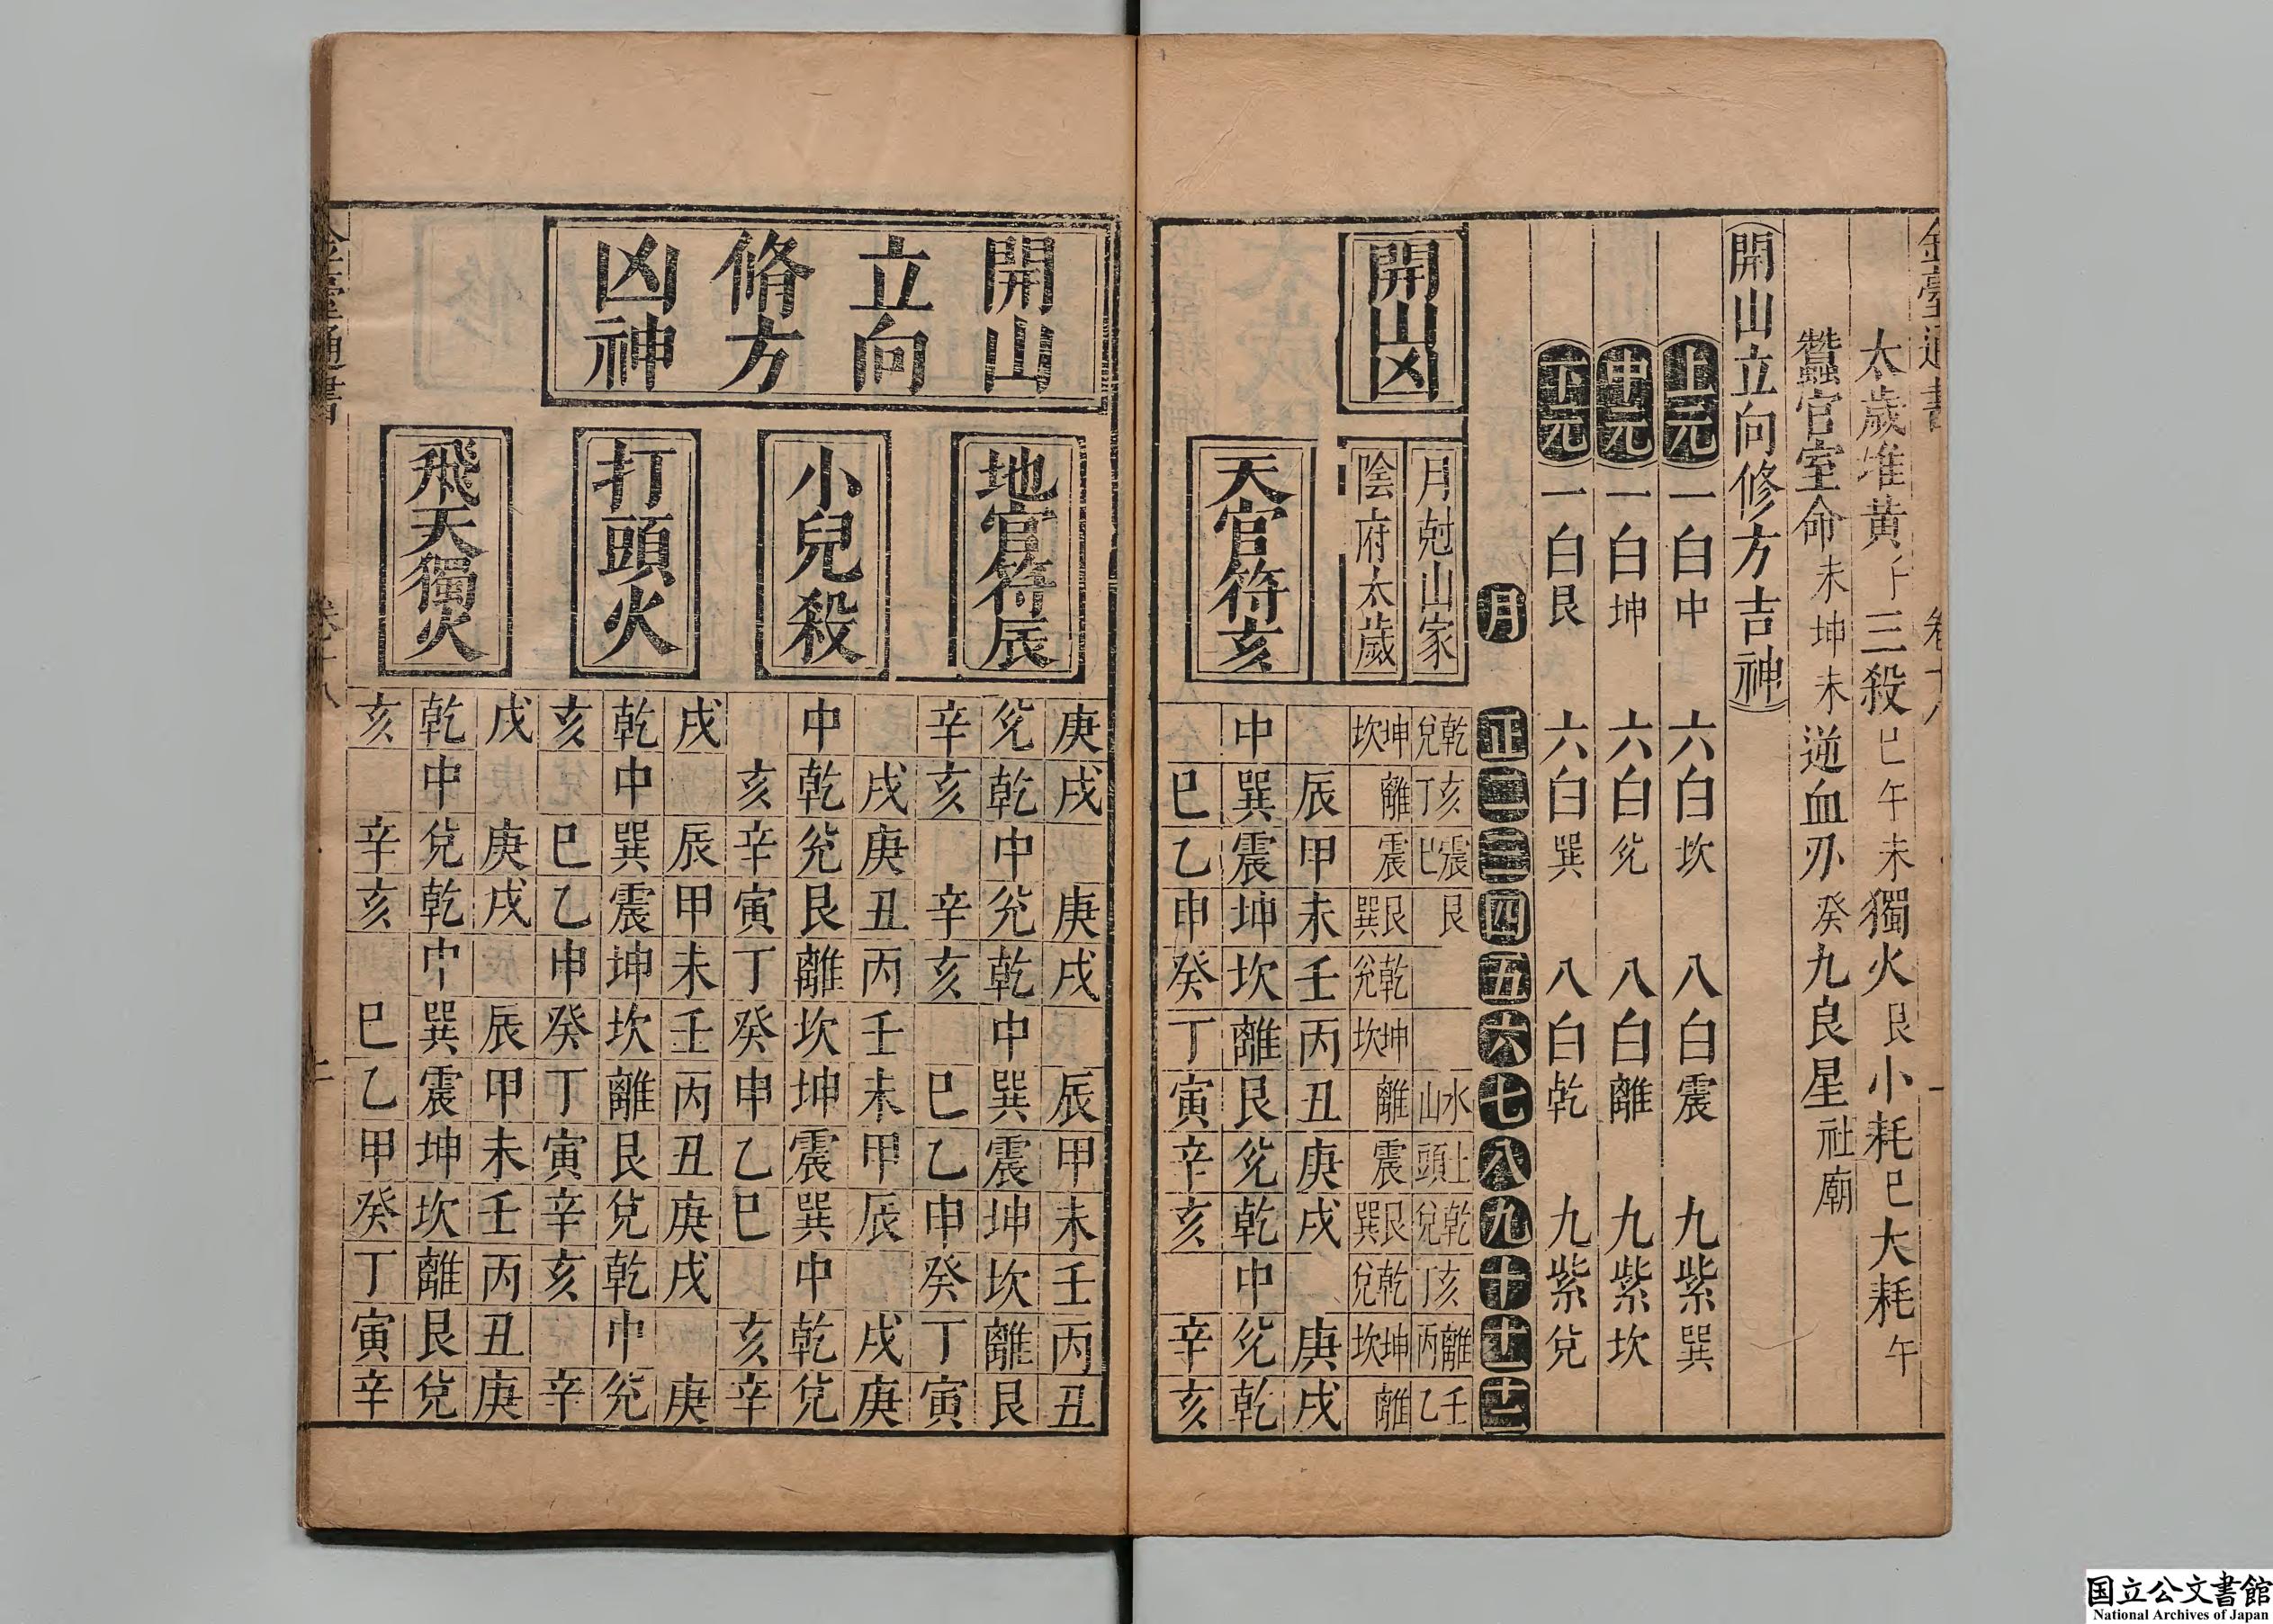 太歲堆黃 三殺巳午未獨火艮小耗巳大耗午
蠶官室命未坤未逆血刃癸九良星社廟
開山立向修方吉神
上元 一白中 六白坎 八白震 九紫巽
中元 一白坤 六白兊 八白離 九紫坎
下元 一白艮 六白巽 八白乾 九紫兌
月 正 二 三 四 五 六 七 八 九 十 十一 十二
開山凶
月尅山家 乾兌 亥丁 震巳 艮 水山 土頭 乾兌 亥丁 離丙 壬乙
陰府太歲 坤坎 離 震 艮巽 乾兊 坤坎 離 震 艮巽 乾兌 坤坎 離
天官符亥
辰 甲 未 壬 丙 丑 庚 戌 庚 戌
中 巽 震 坤 坎 離 艮 兊 乾 中 兊 乾
巳 乙 申 癸 丁 寅 辛 亥 辛 亥
開山
立向
脩方
凶神
地官符辰
庚 戌 庚 戌 辰 甲 未 壬 丙 丑
兊 乾 中 兊 乾 中 巽 震 坤 坎 離 艮
辛 亥 辛 亥 巳 乙 申 癸 丁 寅
小兒殺
戌 庚 丑 丙 壬 未 甲 辰 戌 庚
中 乾 兊 艮 離 坎 坤 震 巽 中 乾 兌
亥 辛 寅 丁 癸 申 乙 巳 亥 辛
打頭火
戌 辰 甲 未 壬 丙 丑 庚 戌 庚
乾 中 巽 震 坤 坎 離 艮 兌 乾 中 兊
亥 巳 乙 申 癸 丁 寅 辛 亥 辛
飛天獨火
戌 庚 戌 辰 甲 未 壬 丙 丑 庚
乾 中 兌 乾 中 巽 震 坤 坎 離 艮 兌
亥 辛 亥 巳 乙 甲 癸 丁 寅 辛
国立公文書館
National Archives of Japan